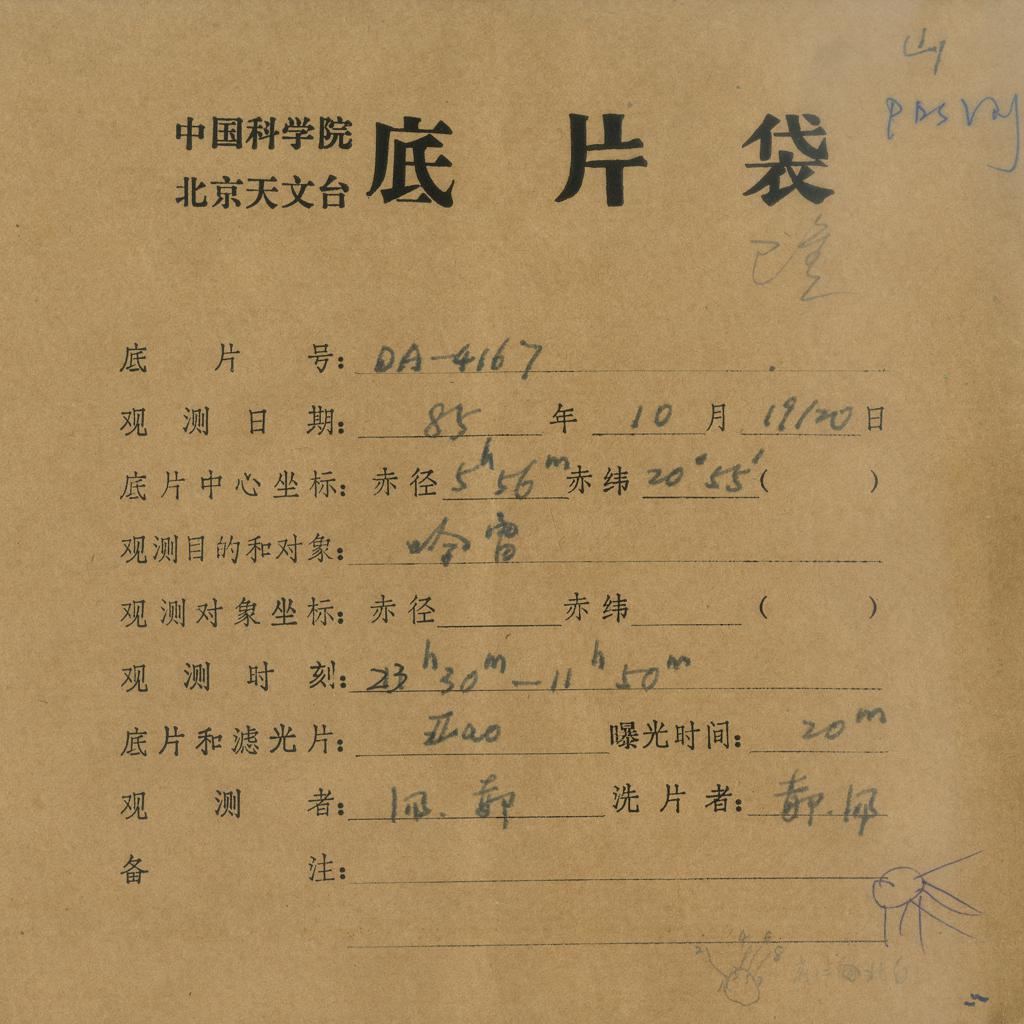 中国科学院
北京天文台
底片袋
底片号: DA-4167
观测日期: 85年10月19/20日
底片中心坐标: 赤径5h56m赤纬20°55′( )
观测目的和对象: 哈雷
观测对象坐标: 赤径 赤纬 ( )
观测时刻: 23h30m-11h50m
底片和滤光片: IIao 曝光时间: 20m
观测者: 洗片者:
备注: